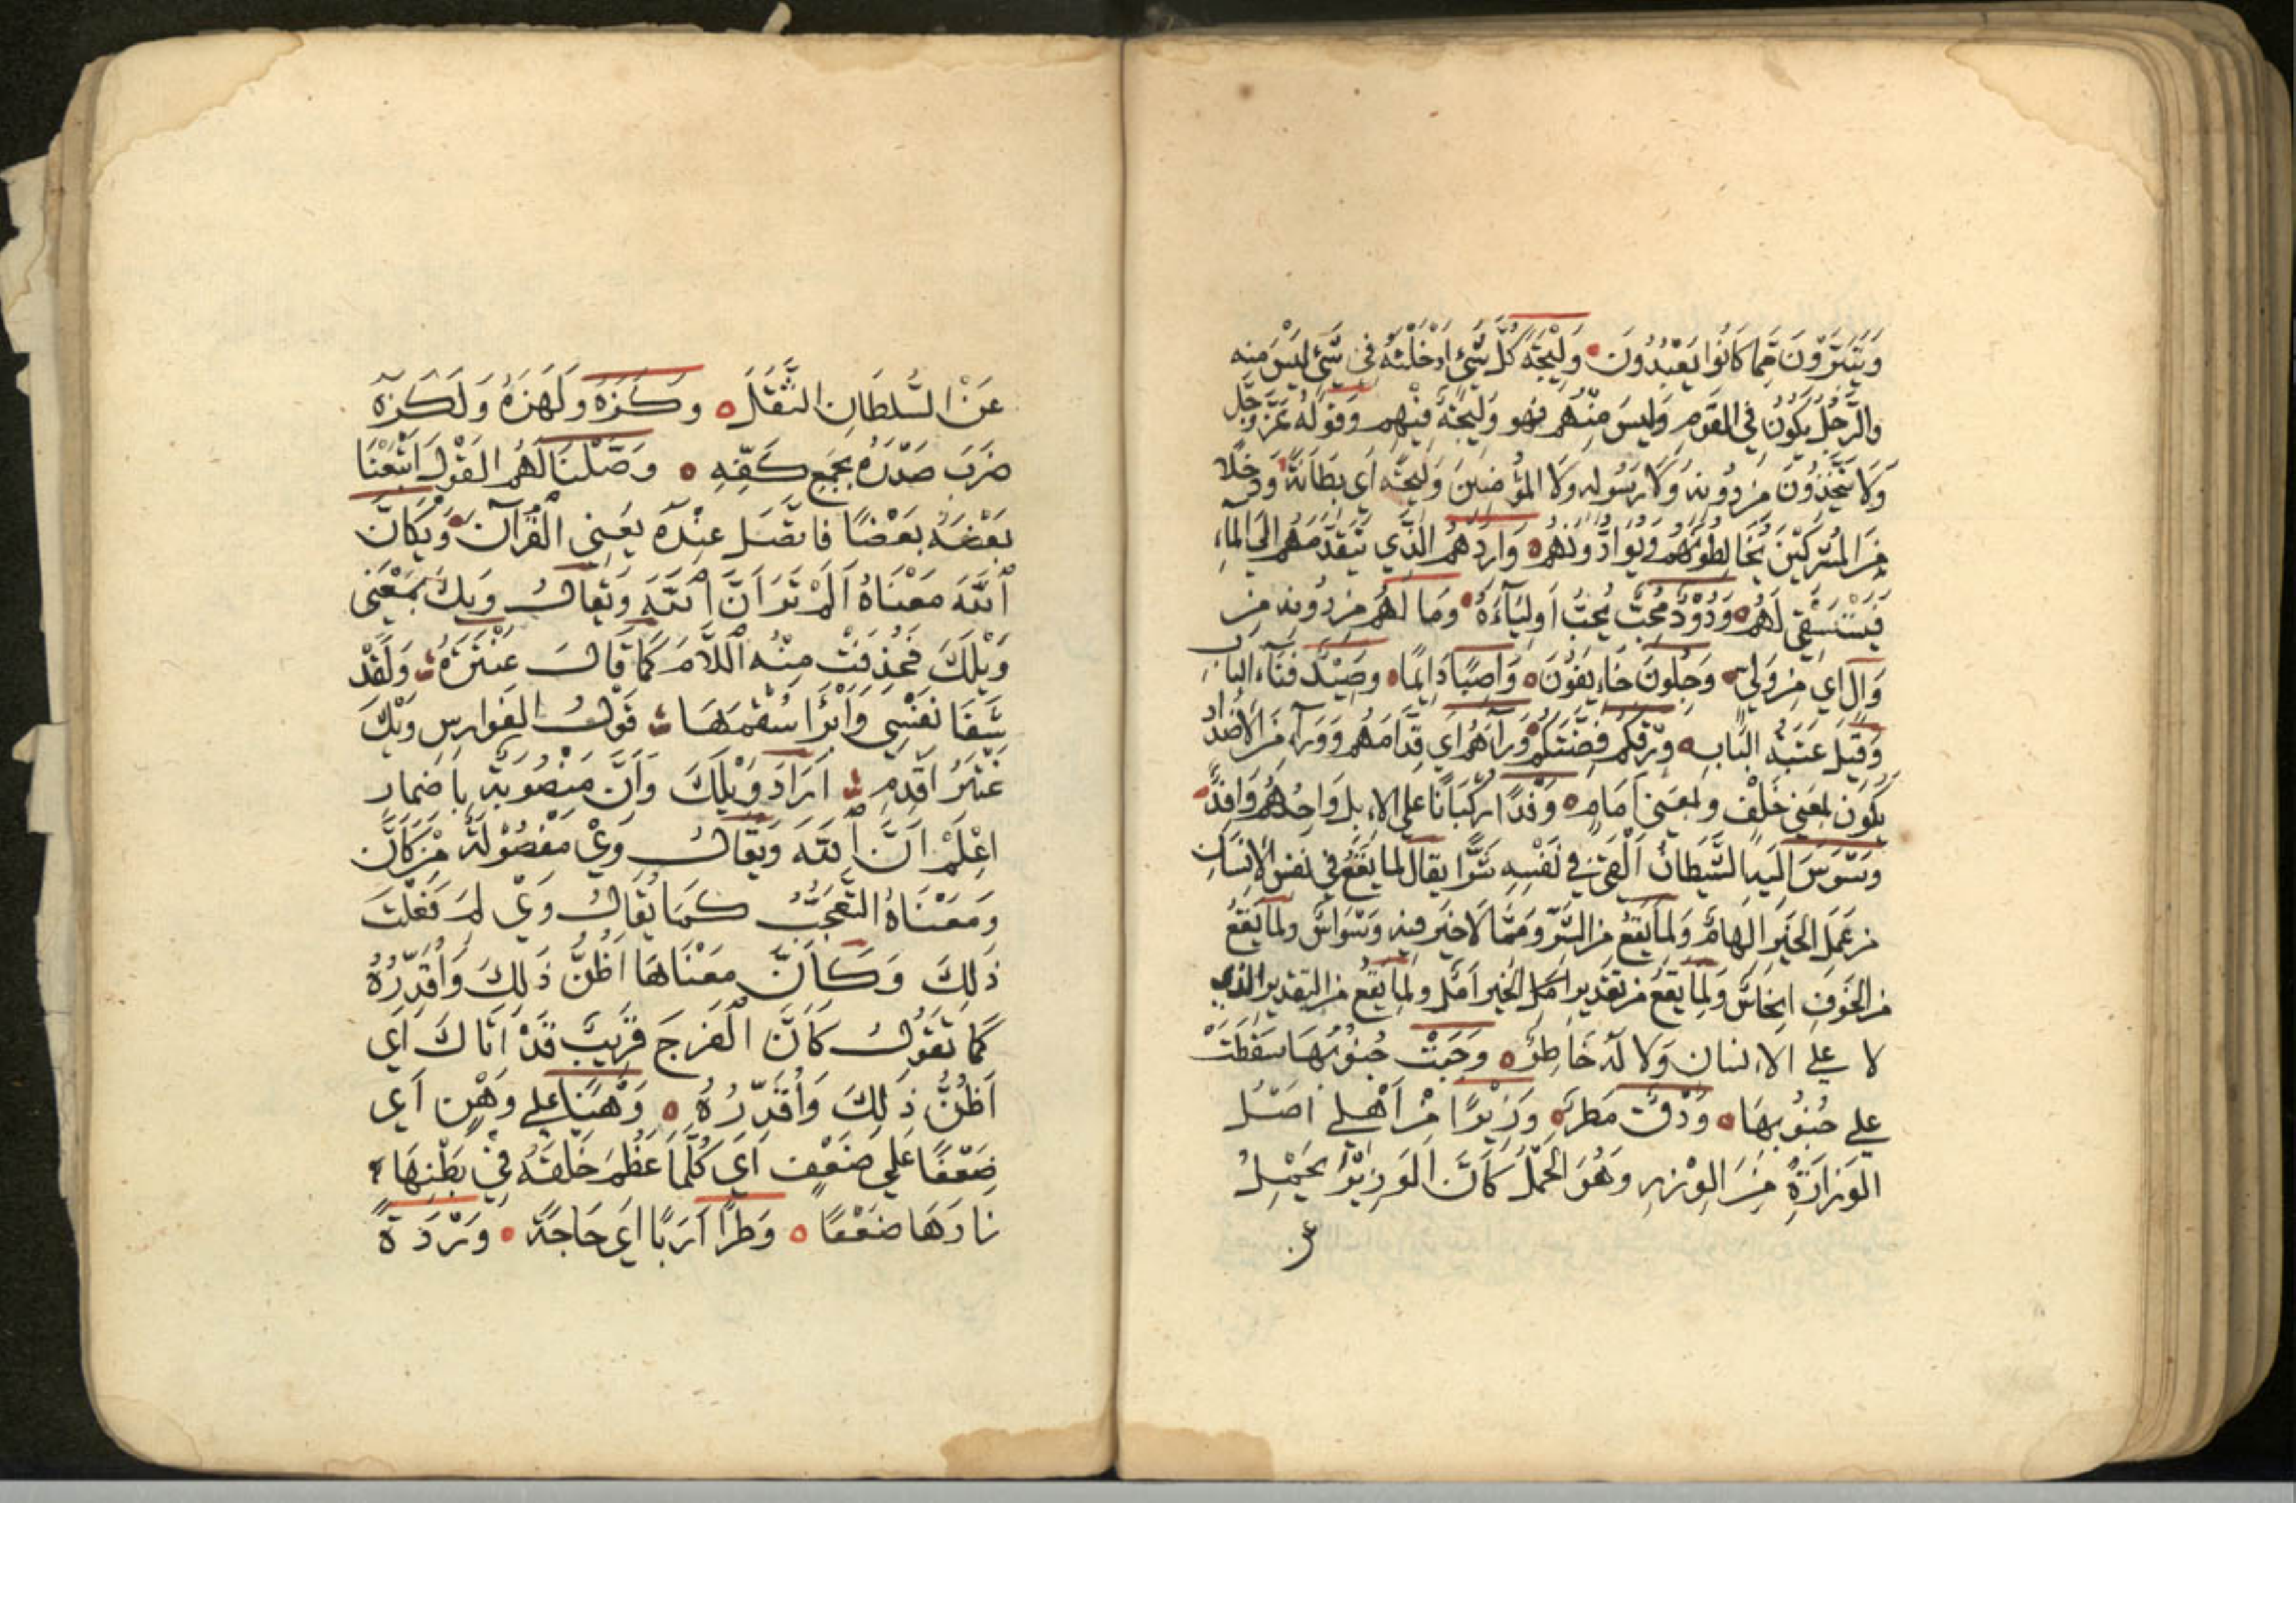 وَيَتَبَرَّؤُنَ مِمَّا كَانُوا يَعْبُدُونَ ۰ وَلِيجَةً كُلُّ شَيْءٍ ادْخَلْتَهُ فِي شَيْءٍ لَيْسَ مِنه
والرَّجُلُ يَكُونُ فِي القَومِ وَلَيسَ مِنْهُم فهو وَلِيجَةٌ فِيْهِم وَقَولُهُ عَزَّ وَجَلَّ
وَلَا يَتَّخِذُونَ مِن دُونِهِ وَلَا رَسُولِهِ وَلَا المُؤمِنِينَ وَلِيجَةً اَي بِطَانَةً وَدُخَلَا
مِنَ المُشرِكِيْنَ يُخَالِطُونَهُم وَيُوَادُّونَهُم ۰ وَارِدَهُم الَّذِي يَتَقَدَّمُهُم اِلَى المَاءِ
فَيَسْتَسْقِي لَهُم ۰ وَدُوْدٌ مُحِبٌّ يُحِبُّ اَولِيَاءَهُ ۰ وَمَا لَهُم مِن دُونِهِ مِن
وَالٍ اَي مِن وَلِيٍّ ۰ وَجِلُونَ خَايِفُونَ ۰ وَاصِبًا دَايِمًا ۰ وَصِيْدٌ فِنَاءُ البَابِ
وَقِيلَ عَتَبَةُ البَابِ ۰ وَرِقِكُم فِضَّتِكُم ۰ وَرَآءَهُم اَي قُدَّامَهُم وَوَرَآءَ مِنَ الاَضْدَادِ
يَكُون بمعنى خَلْف وبمعنى اَمَام ۰ وَفْدًا رُكْبَانًا على الابل وَاحِدُهُم وَافِدٌ ۰
وَسْوَسَ اليهِ الشَّيطَانُ اَلْقَى فِي نَفْسِهِ شَرًّا يقال لما يَقَعُ فِي نَفسِ الاِنسَانِ
مِن عَمَلِ الخَيرِ الهامٌ وَلِمَا يَقَعُ مِن الشَّرِّ وَمِمَّا لَا خَيرَ فيه وَسْوَاسٌ ولما يَقَعُ
مِن الخَوفِ ايجَاسٌ وَلِمَا يَقَعُ مِن تَقدِيرِ اَمَلِ الخَيرِ اَمَلٌ ولِمَا يَقَعُ مِن التقديرِ الذي
لا على الانسان وَلا لَهُ خَاطِرٌ ۰ وَجَبَتْ جُنُوبُهَا سَقَطَتْ
على جُنُوبِهَا ۰ وَدْقٌ مَطَرٌ ۰ وَزِيْرًا مِنْ اَهْلِي اَصْلُ
الوَزَارَةِ مِنَ الوِزْرِ وَهُوَ الحِمْلُ كَاَنَّ الوَزِيْرَ يَحْمِلُ
عن
عَنْ السُّلطَانِ الثِّقَلَ ۰ وَكَزَهُ وَلَهَزَهُ وَلَكَزَهُ
ضَرَبَ صَدْرَهُ بِجُمْعِ كَفِّهِ ۰ وَصَّلْنَا لَهُم القَوْلَ اَتْبَعْنَا
بَعْضَهُ بَعْضًا فَاتَّصَلَ عِنْدَهُ يَعْنِي القُرْآنَ ۰ وَيْكَاَنَّ
اللَّهَ مَعْنَاهُ اَلَمْ تَرَ اَنَّ اللَّهَ وَيُقَالُ وَيكَ بِمَعْنَى
وَيْلَكَ فَحُذِفَتْ مِنْهُ اللَّامُ كَمَا قَالَ عَنْتَرَةُ وَلَقَدْ
شَفَا نَفْسِي وَاَبْرَا سُقْمَهَا قَولُ الفَوارِسِ وَيْكَ
عَنْتَرُ اَقْدِمِ اَرَادَ وَيْلَكَ وَاَنَّ مَنْصُوبَةٌ بِاِضمار
اِعْلَمْ اَنَّ اللَّهَ وَيُقَالُ وَيْ مَفْصُوْلَةٌ مِنْ كَاَنَّ
وَمَعْنَاهُ التَّعَجُّبُ كَمَا يُقَالُ وَيْ لِمَ فَعَلْتَ
ذَلِكَ وَكَاَنَّ مَعْنَاهَا اَظُنُّ ذَلِكَ وَاُقَدِّرُهُ
كَمَا تَقُولُ كَاَنَّ الفَرَجَ قَرِيبٌ قَدْ اَتَاكَ اَي
اَظُنُّ ذَلِكَ وَاُقَدِّرُهُ ۰ وَهْنًا على وَهْنٍ اَي
ضَعْفًا عَلَى ضَعْفٍ اَي كُلَّمَا عَظُمَ خَلْقُهُ فِي بَطْنِهَا
زادَهَا ضَعْفًا ۰ وَطَرًا اَرَبًا اَي حَاجَةً ۰ وَرْدَةً